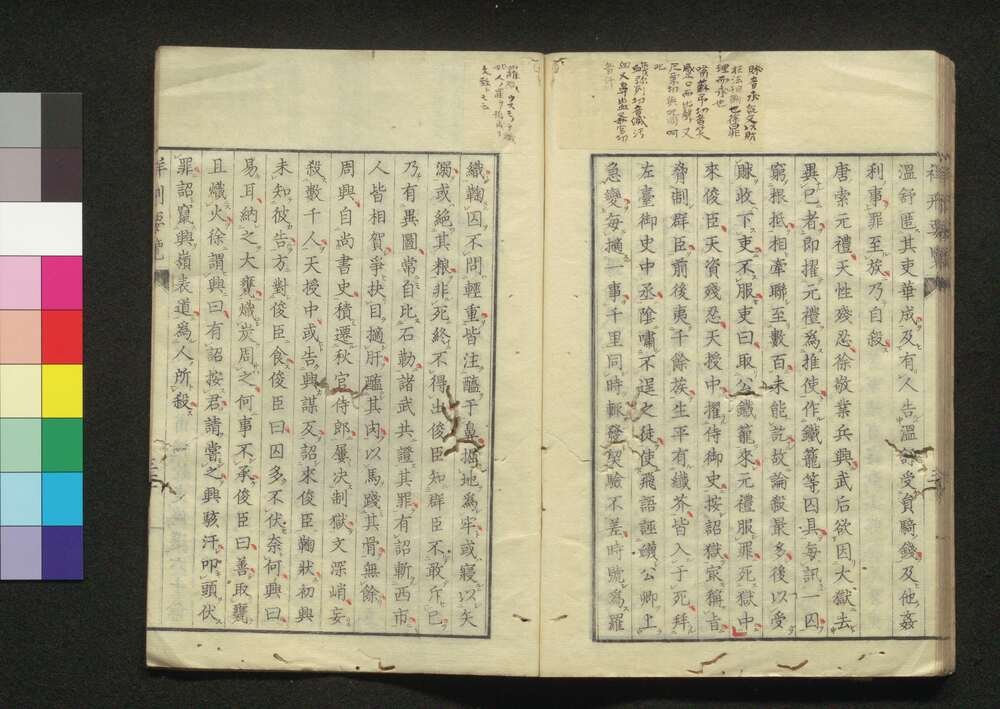 溫舒匿其吏華成及有人告溫舒受負騎錢及他姦
利事罪至族乃自殺
唐索元禮天性殘忍徐敬業兵興武后欲因大獄去
異已者即擢元禮爲推使作鐵籠等囚具每訊一囚
窮根抵相牽聯至數百未能訖故論殺最多後以受
賕收下吏不服吏曰取公鐵籠來元禮服罪死獄中
來俊臣天資殘忍天授中擢侍御史按詔獄寀稱旨
脅制群臣前後夷千餘族生平有纖芥皆入于死拜
左臺御史中丞陰嘯不逞之徒使飛語誣衊公卿上
急變每擿一事千里同時輒發契驗不差時號爲羅
織鞠囚不問輕重皆注醯于鼻掘地爲牢或寢以矢
溺或絕其粮非死終不得出俊臣知群臣不敢斥已
乃有異圖常自比石勒諸武共證其罪有詔斬西市
人皆相賀爭抉目擿肝醢其肉以馬踐其骨無餘
周興自尚書史積遷秋官侍郎屢決制獄文深峭妄
殺數千人天授中或告興謀反詔來俊臣鞠狀初興
未知彼告方對俊臣食俊臣曰囚多不伏奈何興曰
易耳納之大甕熾炭周之何事不承俊臣曰善取甕
且熾火徐謂興曰有詔按君請嘗之興駭汗叩頭伏
罪詔竄興嶺表道爲人所殺